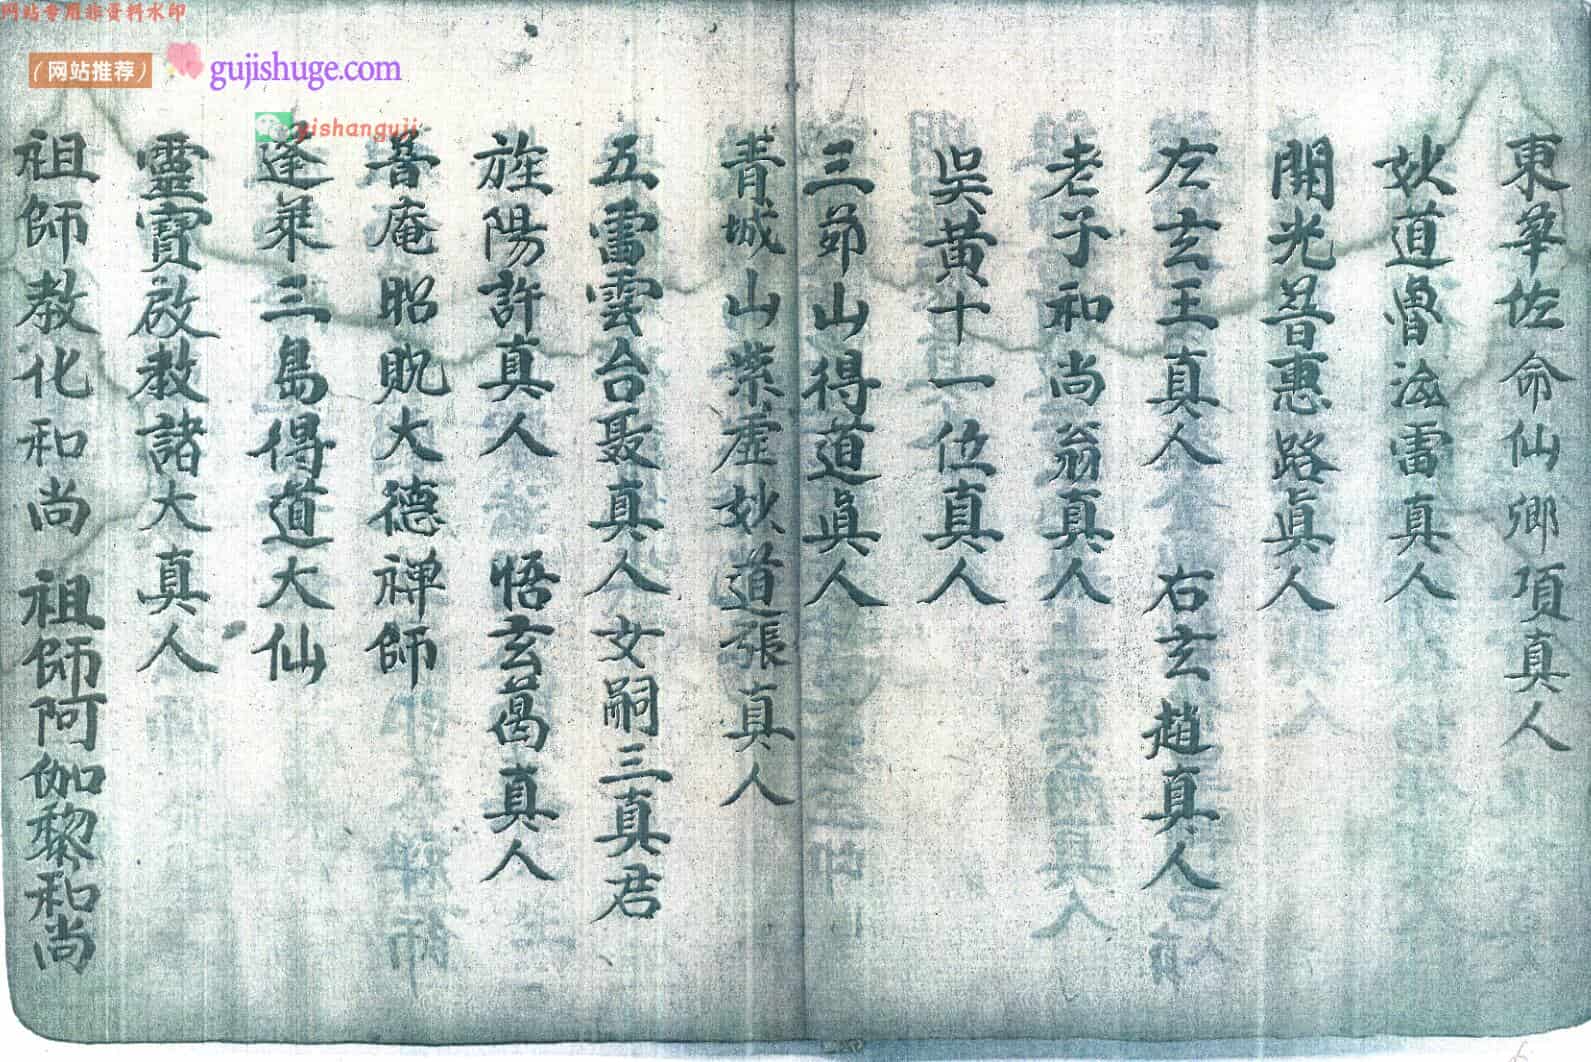 网站专用非资料水印
(网站推荐)
gujishuge.com
yishanguji
東華佐命仙卿項真人
妙道魯海雷真人
開光普惠路眞人
左玄王真人 右玄趙真人
老子和尚翁真人
吳黃十一位真人
三茆山得道眞人
青城山紫虛妙道張真人
五雷雲台聂真人女嗣三真君
旌陽許真人 悟玄葛真人
普庵昭貺大德禅師
逢莱三島得道大仙
靈寶啟教諸大真人
祖師教化和尚 祖師阿伽黎和尚